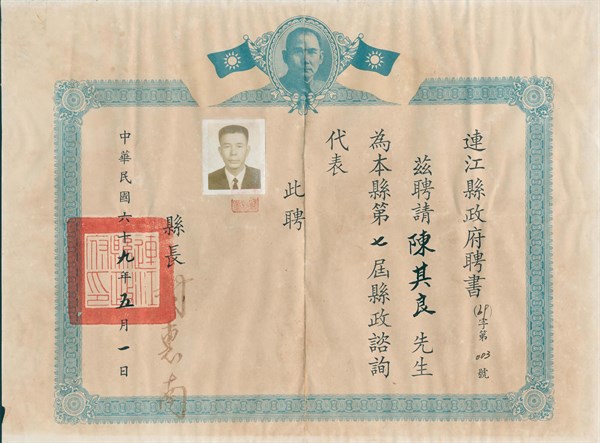 連江縣政府聘書
(69)字第003號
茲聘請陳其良先生
為本縣第七屆縣政諮詢
代表
此聘
縣長
惠南
連江縣政府印
中華民國六十九年五月一日